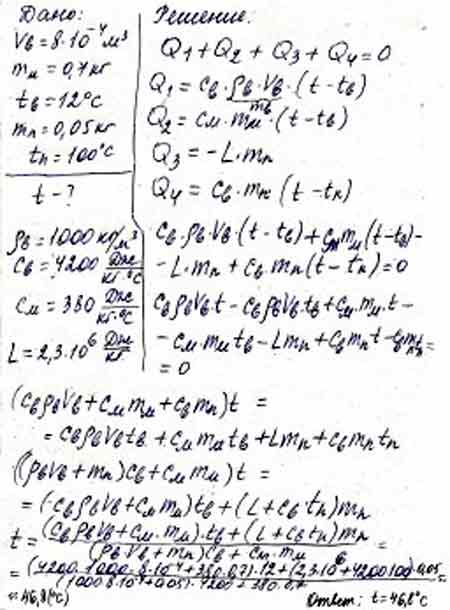 Дано:
Vв = 8·10⁻⁴ м³
mм = 0,7 кг
tв = 12°C
mп = 0,05 кг
tп = 100°C
t - ?
ρв = 1000 кг/м³
cв = 4200 Дж/кг·°C
cм = 380 Дж/кг·°C
L = 2,3·10⁶ Дж/кг
Решение:
Q1 + Q2 + Q3 + Q4 = 0
Q1 = cв·ρв·Vв·(t - tв)
mв
Q2 = cм·mм·(t - tв)
Q3 = -L·mп
Q4 = cв·mп (t - tп)
cв·ρв·Vв·(t - tв) + cм mм (t - tв) -
- L·mп + cв·mп (t - tп) = 0
cв ρв Vв t - cв ρв Vв tв + cм·mм·t -
- cм·mм tв - L mп + cв mп t - cв mп tп =
= 0
(cв ρв Vв + cм mм + cв mп) t =
= cв ρв Vв tв + cм mм tв + L mп + cв mп tп
((ρв Vв + mп) cв + cм mм) t =
= (cв ρв Vв + cм mм) tв + (L + cв tп) mп
t = (cв ρв Vв + cм·mм)·tв + (L + cв tп) mп / (ρв·Vв + mп) cв + cм·mм =
= (4200·1000·8·10⁻⁴ + 380·0,7)·12 + (2,3·10⁶ + 4200·100)·0,05 / (1000·8·10⁻⁴ + 0,05)·4200 + 380·0,7 =
= 46,8 (°C)
Ответ: t = 46,8°C